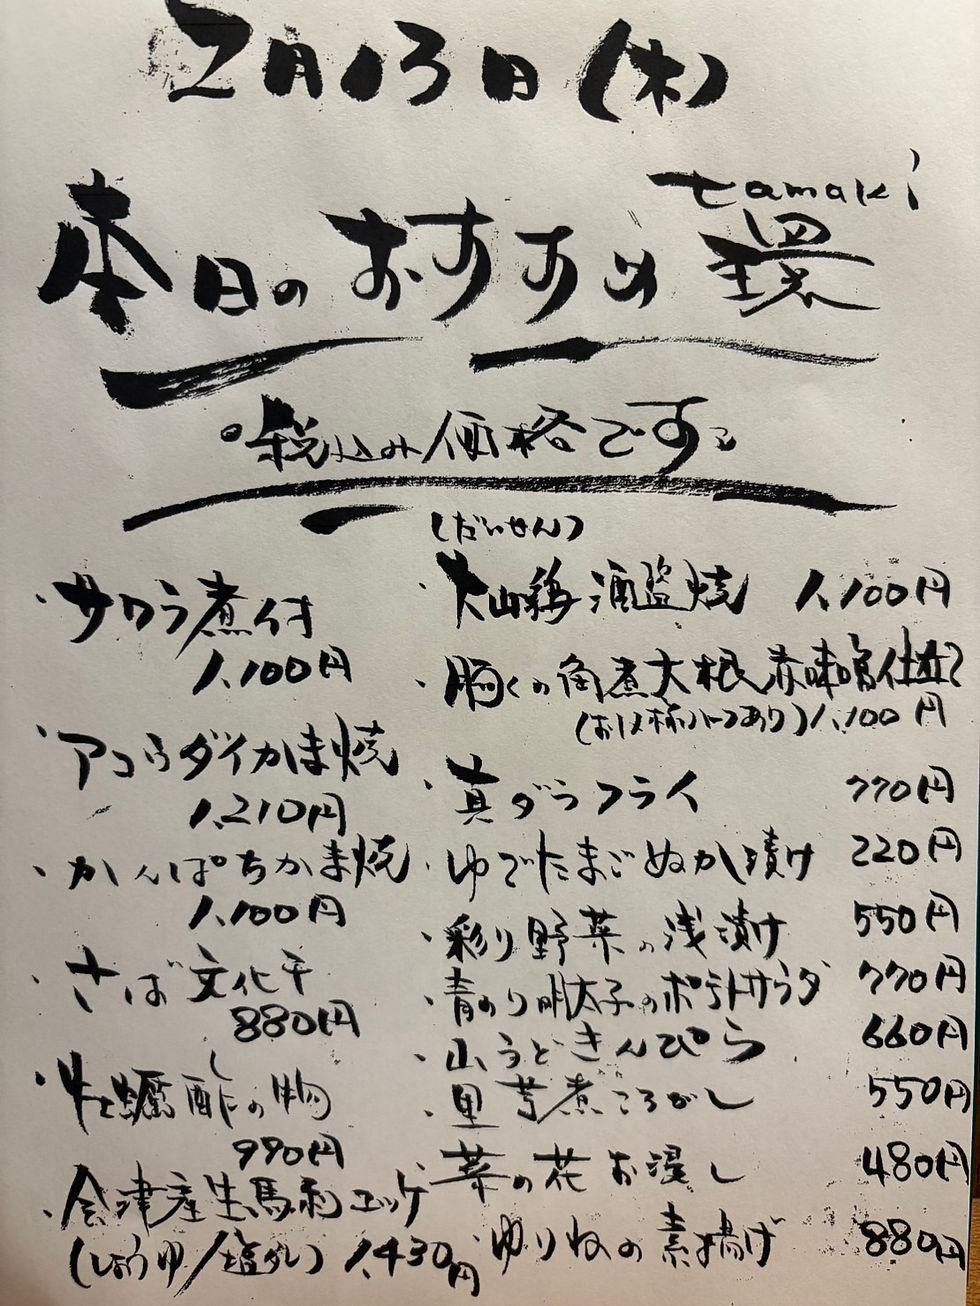 2月13日(木)
tamaki
本日のおすすめ 環
。税込み価格です。
・サワラ煮付
1,100円
・アコウダイかま焼
1,210円
・かんぱちかま焼
1,100円
・さば文化干し
880円
・牡蠣酢の物
990円
・会津産生馬刺ユッケ
(しょうゆ/塩ダレ) 1,430円
(だいせん)
・大山鶏酒盗焼 1,100円
・豚くの角煮大根赤味噌仕立て
(おに柿ハーフあり) 1,100円
・真ダラフライ 770円
・ゆでたまごぬか漬け 220円
・彩り野菜の浅漬け 550円
・青のり明太子のポテトサラダ 770円
・山うどきんぴら 660円
・里芋煮ころがし 550円
・菜の花お浸し 480円
・ゆりねの素揚げ 880円